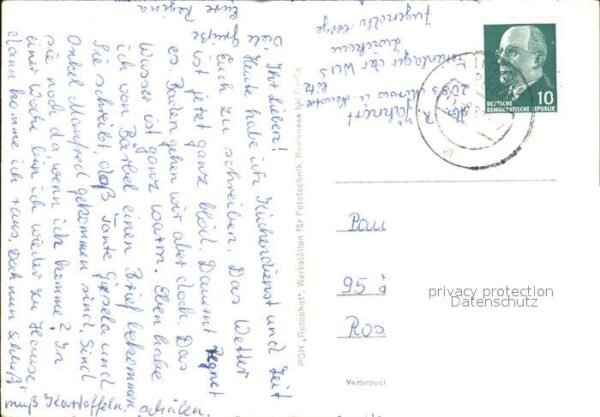 Ihr Lieben!
Heute habe ich Küchendienst und Zeit
Euch zu schreiben. Das Wetter
ist jetzt ganz blöd. Dauernd regnet
es. Baden gehen wir aber doch. Das
Wasser ist ganz warm. Eben habe
ich von Bärbel einen Brief bekommen
Sie schreibt, daß Tante Gisela und
Onkel Manfred gekommen sind. Sind
sie noch da, wenn ich komme? In
einer Woche bin ich wieder zu Hause,
dann komme ich raus. Doch nun Schluß,
muß Kartoffeln schälen.
Viele
Grüße
Eure Regina
Abs. R. Jähnert
2081
Ferienlager der
Zwickau
PGH „Rotophot", Werkstätten für Fototechnik, Bestensee bei Berlin
DEUTSCHE
DEMOKRATISCHE REPUBLIK
10
95
Ros
privacy protection
Datenschutz